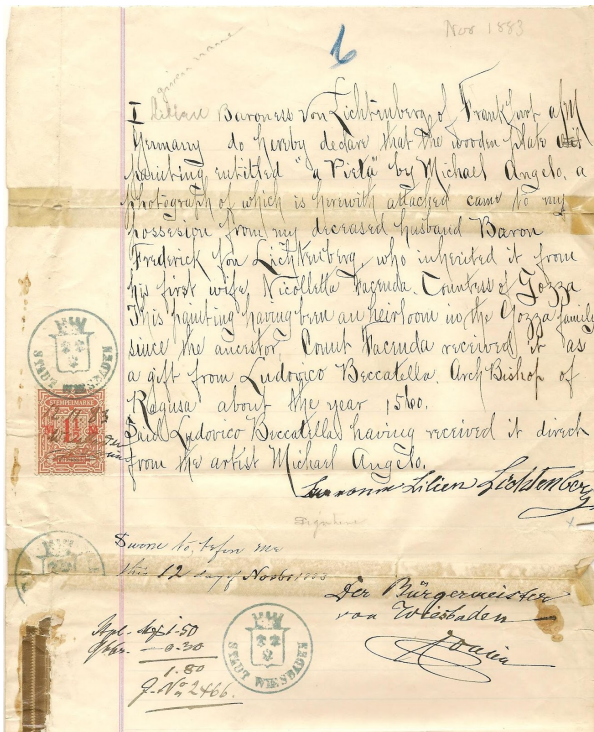 Nov 1883
6
given name
I Lilian Baroness von Lichtenberg of Frankfurt a/M
Germany do hereby declare that the wooden plate
painting entitled "a Pietà" by Michael Angelo, a
photograph of which is herewith attached came to my
possession from my deceased husband Baron
Frederick fon Lichtenberg, who inherited it from
his first wife, Nicolletta Facenda. Countess of Gozza
This painting having been an heirloom in the Gozza family
since the ancestor Count Facenda received it as
a gift from Ludovico Beccatella. Arch Bishop of
Ragusa about the year 1560.
Said Ludovico Beccatella having received it direct
from the artist Michael Angelo.
Lilien Lichtenberg
Signature
x
STADT WIESBADEN
STEMPELMARKE
12 11 83
Sworn to, before me
this 12 day of
Der Bürgermeister
von Wiesbaden
STADT WIESBADEN
1.50
0.30
1.80
J. No 2466.